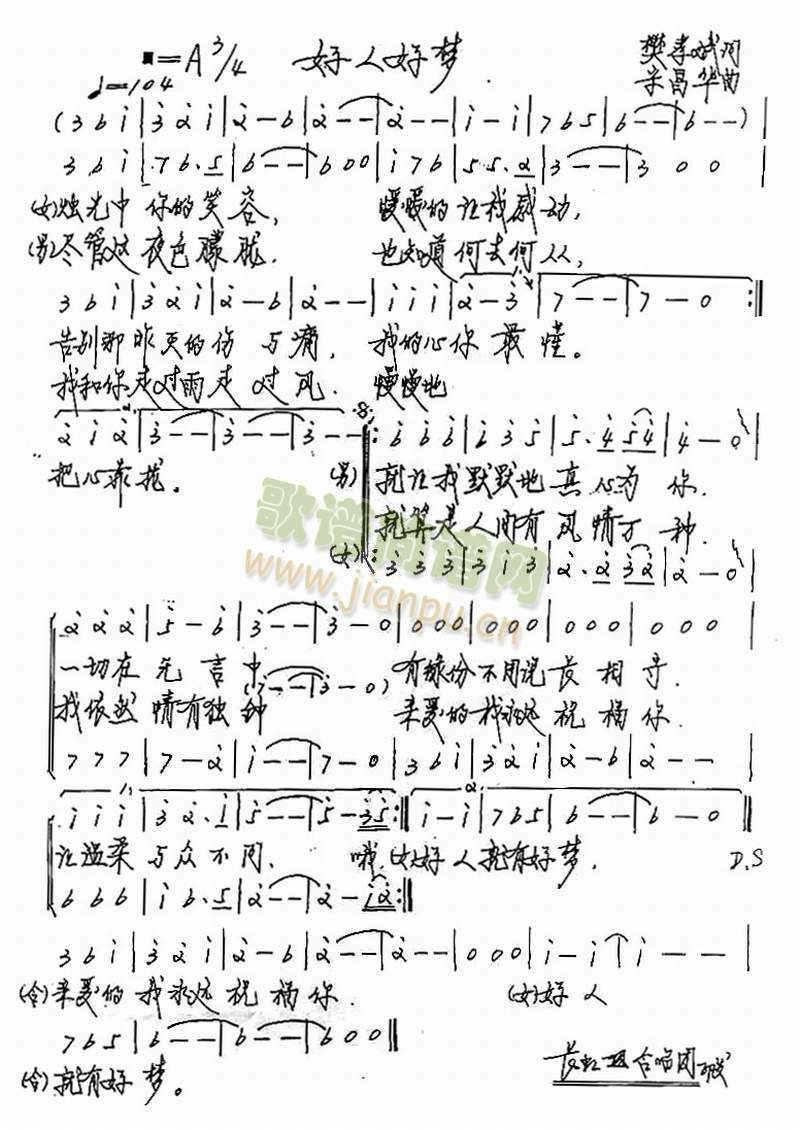 1=A 3/4 好人好梦 樊孝斌词
♩=104 宋昌华曲
(3 6 i | 3 2 i | 2 - 6 | 2 - - | 2 - - | i - i | 7 6 5 | 6 - - | 6 - - ) |
3 6 i | 7 6. 5 | 6 - - | 6 0 0 | i 7 6 | 5 5. 2 | 3 - - | 3 0 0 |
(女)烛光中 你的笑容, 暖暖的让我感动,
(男)尽管这夜色朦胧. 也知道何去何从,
3 6 i | 3 2 i | 2 - 6 | 2 - - | i i i | 2 - 3 | 7 - - | 7 - 0 :||
告别那昨天的伤与痛, 我的心你最懂。
我和你走过雨走过风. 慢慢地
2 i 2 | 3 - - | 3 - - | 3 - - ||: 6 6 6 | 6 3 5 | 5. 4 5 4 | 4 - 0 |
把心靠拢。 (男) 就让我默默地真心为你.
就算是人间有风情万种.
(女) : 3 3 3 | 3 i 3 | 2. 2 3 2 | 2 - 0 |
2 2 2 | 5 - 6 | 3 - - | 3 - 0 | 0 0 0 | 0 0 0 | 0 0 0 | 0 0 0
一切在无言中 (7 - - | 3 - 0) 有缘份不用说长相守.
我依然情有独钟 亲爱的我永远祝福你.
7 7 7 | 7 - 2 | i - - | 7 - 0 | 3 6 i | 3 2 i | 2 - 6 | 2 - - |
i i i | 3 2. i | 5 - - | 5 - 3 5 :|| i - i | 7 6 5 | 6 - - | 6 - 0 ||
让温柔与众不同. 哦 (女)好人就有好梦. D.S
6 6 6 | i 6. 5 | 2 - - | 2 - i 2 :||
3 6 i | 3 2 i | 2 - 6 | 2 - - | 2 - - | 0 0 0 | i - i | i - - |
(合)亲爱的我永远祝福你. (女)好人
7 6 5 | 6 - - | 6 - - | 6 0 0 ||
(合)就有好梦。
合唱团
歌谱简谱网
www.jianpu.cn